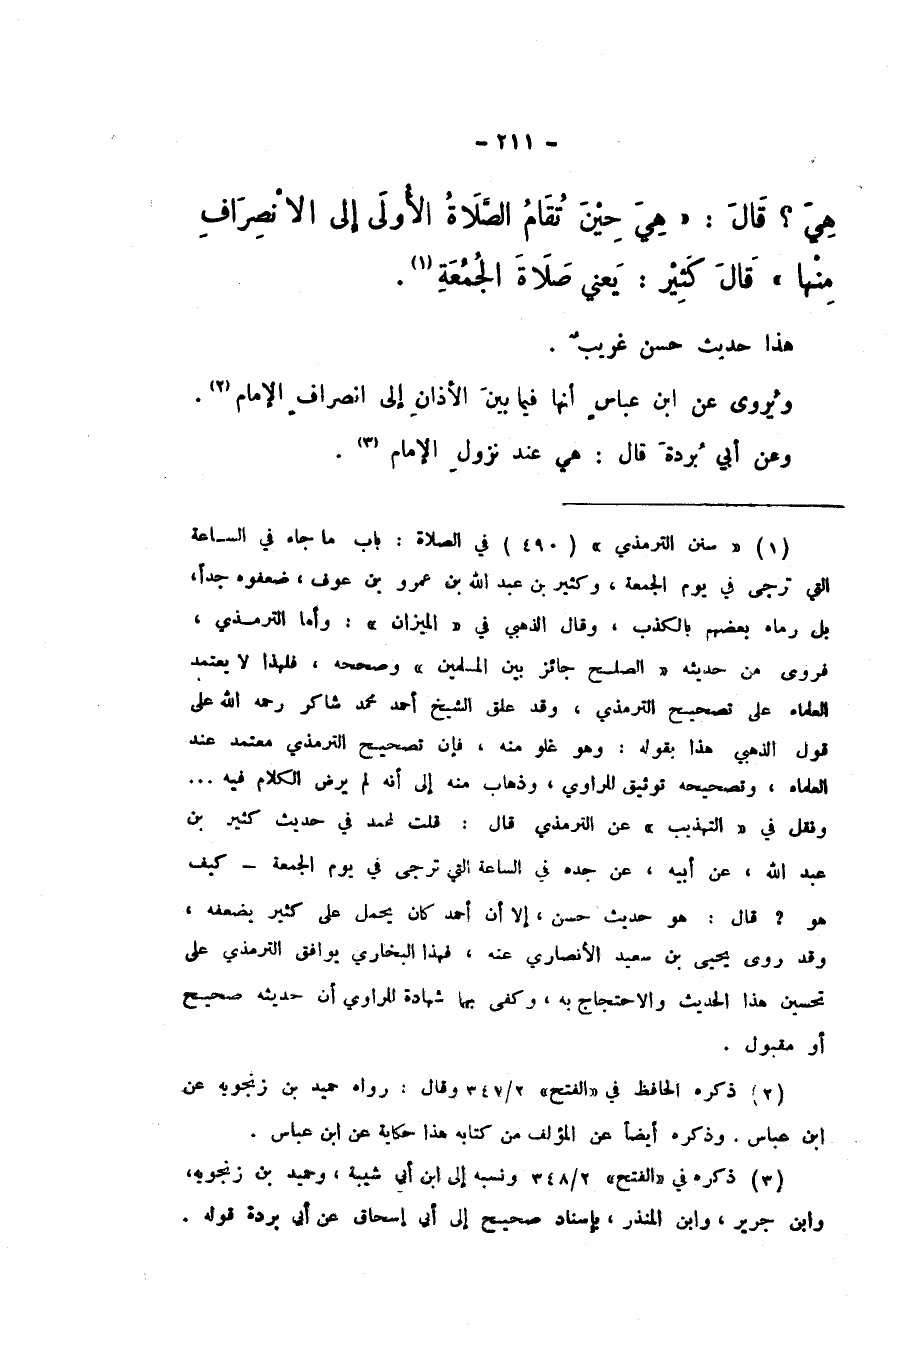 - ٢١١ -
هِيَ ؟ قَالَ : « هِيَ حِيْنَ تُقَامُ الصَّلَاةُ الأُولَى إلى الانْصِرَافِ
مِنْها » قَالَ كَثِيْر : يَعني صَلَاةَ الجُمُعَةِ (١) .
هذا حديث حسن غريبٌ .
ويُروى عن ابن عباسٍ أنها فيما بينَ الأذانِ إلى انصرافِ الإمام (٢) .
وعن أبي بُردةَ قال : هي عند نزولِ الإمام (٣) .
(١) « سنن الترمذي » ( ٤٩٠ ) في الصلاة : باب ما جاء في الساعة
التي ترجى في يوم الجمعة ، وكثير بن عبد الله بن عمرو بن عوف ، ضعفوه جداً،
بل رماه بعضهم بالكذب ، وقال الذهبي في « الميزان » : وأما الترمذي ،
فروى من حديثه « الصلح جائز بين المسلمين » وصححه ، فلهذا لا يعتمد
العلماء على تصحيح الترمذي ، وقد علق الشيخ أحمد محمد شاكر رحمه الله على
قول الذهبي هذا بقوله : وهو غلو منه ، فإن تصحيح الترمذي معتمد عند
العلماء ، وتصحيحه توثيق للراوي ، وذهاب منه إلى أنه لم يرض الكلام فيه ...
ونقل في « التهذيب » عن الترمذي قال : قلت لمحمد في حديث كثير بن
عبد الله ، عن أبيه ، عن جده في الساعة التي ترجى في يوم الجمعة – كيف
هو ? قال : هو حديث حسن ، إلا أن أحمد كان يحمل على كثير يضعفه ،
وقد روى يحيى بن سعيد الأنصاري عنه ، فهذا البخاري يوافق الترمذي على
تحسين هذا الحديث والاحتجاج به ، وكفى بها شهادة للراوي أن حديثه صحيح
أو مقبول .
(٢) ذكره الحافظ في «الفتح» ٣٤٧/٢ وقال : رواه حميد بن زنجويه عن
ابن عباس . وذكره أيضاً عن المؤلف من كتابه هذا حكاية عن ابن عباس .
(٣) ذكره في «الفتح» ٣٤٨/٢ ونسبه إلى ابن أبي شيبة ، وحميد بن زنجويه،
وابن جرير ، وابن المنذر ، بإسناد صحيح إلى أبي إسحاق عن أبي بردة قوله .